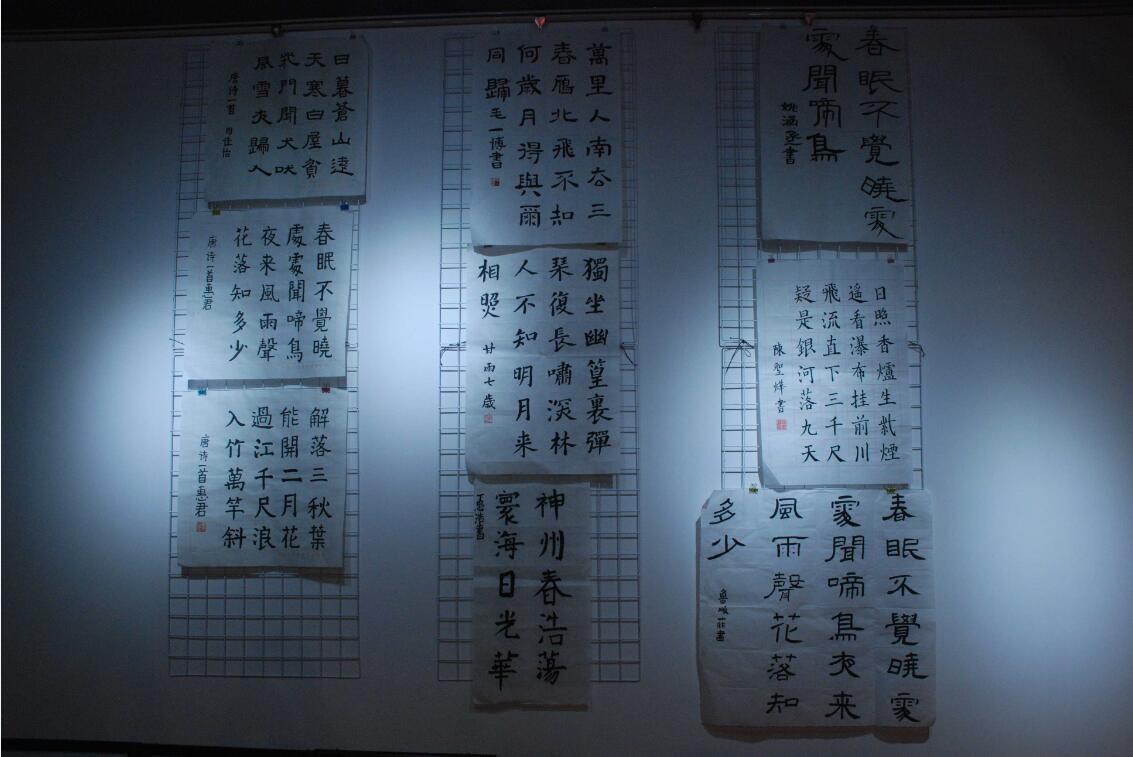 日暮蒼山遠
天寒白屋貧
柴門聞犬吠
風雪夜歸人
唐诗一首 周佳怡
春眠不覺曉
處處聞啼鳥
夜来風雨聲
花落知多少
唐诗一首惠君
解落三秋葉
能開二月花
過江千尺浪
入竹萬竿斜
唐诗一首惠君
萬里人南去三
春鴈北飛不知
何歲月得與爾
同歸毛一博書
獨坐幽篁裏彈
琴復長嘯深林
人不知明月来
相照 甘雨七歲
神州春浩蕩
寰海日光華
春眠不覺曉處
處聞啼鳥
姚涵丞書
日照香爐生紫煙
遥看瀑布挂前川
飛流直下三千尺
疑是銀河落九天
陳聖烨書
春眠不覺曉處
處聞啼鳥夜来
風雨聲花落知
多少